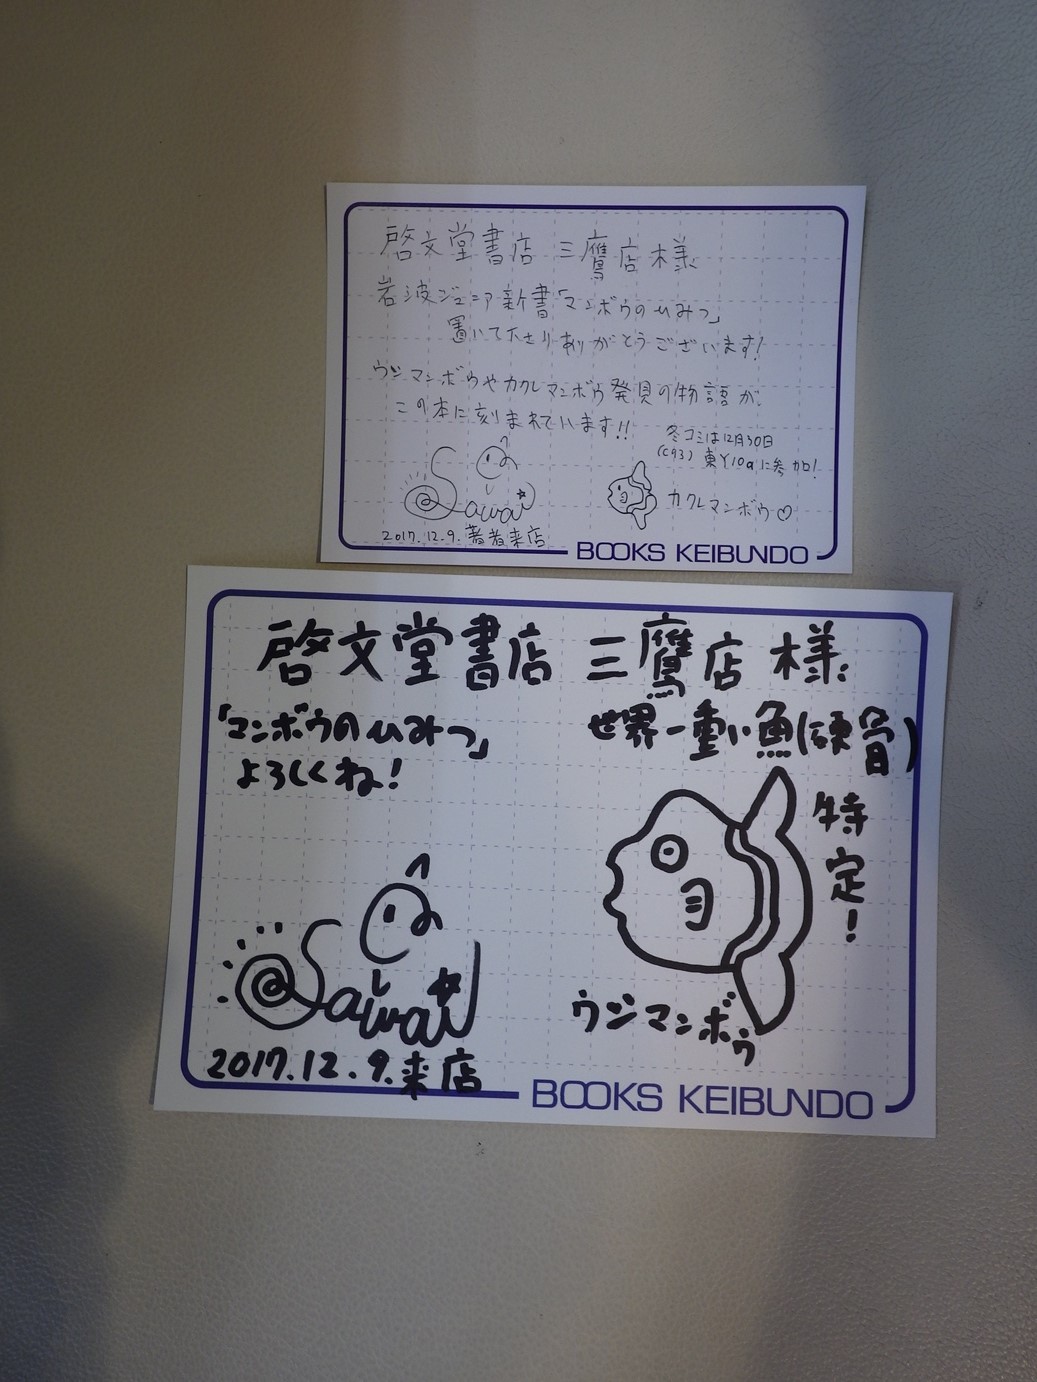 啓文堂書店 三鷹店 様
岩波ジュニア新書「マンボウのひみつ」
置いて下さりありがとうございます!
ウシマンボウやカクレマンボウ発見の物語が、
この本に刻まれています!!
冬コミは12月30日
(C93) 東Y10aに参加!
カクレマンボウ♡
Sawai
2017.12.9.著者来店
BOOKS KEIBUNDO
啓文堂書店 三鷹店 様
「マンボウのひみつ」
よろしくね!
世界一重い魚(硬骨)
特定!
Sawai
ウシマンボウ
2017.12.9.来店
BOOKS KEIBUNDO